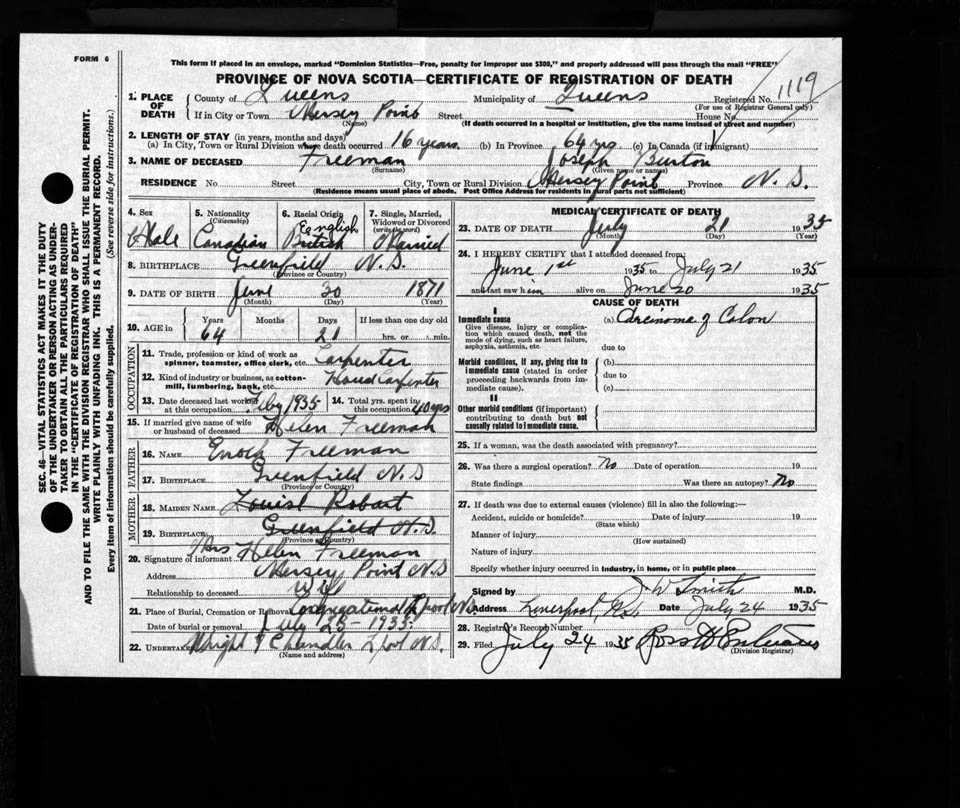 FORM 6
This form if placed in an envelope, marked "Dominion Statistics—Free, penalty for improper use $300," and properly addressed will pass through the mail "FREE"
PROVINCE OF NOVA SCOTIA—CERTIFICATE OF REGISTRATION OF DEATH
1. PLACE OF DEATH County of Queens Municipality of Queens Registered No. 1119
(For use of Registrar General only)
If in City or Town Mersey Point Street House No.
(Name) (If death occurred in a hospital or institution, give the name instead of street and number)
2. LENGTH OF STAY (in years, months and days)
(a) In City, Town or Rural Division where death occurred 16 years (b) In Province 64 yrs (c) In Canada (if immigrant)
3. NAME OF DECEASED Freeman Joseph Burton
(Surname) (Given name or names)
RESIDENCE No. Street City, Town or Rural Division Mersey Point Province N.S.
(Residence means usual place of abode. Post Office Address for residents in rural parts not sufficient)
4. Sex Male
5. Nationality (Citizenship) Canadian
6. Racial Origin English British
7. Single, Married, Widowed or Divorced (write the word) Married
8. BIRTHPLACE Greenfield N.S.
(Province or Country)
9. DATE OF BIRTH June 30 1871
(Month) (Day) (Year)
10. AGE in Years 64 Months Days 21 If less than one day old hrs. or min.
OCCUPATION
11. Trade, profession or kind of work as spinner, teamster, office clerk, etc. Carpenter
12. Kind of industry or business, as cotton-mill, lumbering, bank, etc. House Carpenter
13. Date deceased last worked at this occupation Feby 1935
14. Total yrs. spent in this occupation 40 yrs
15. If married give name of wife or husband of deceased Helen Freeman
FATHER
16. NAME Enoch Freeman
17. BIRTHPLACE Greenfield N.S
(Province or Country)
MOTHER
18. MAIDEN NAME Louise Robart
19. BIRTHPLACE Greenfield N.S.
(Province or Country)
20. Signature of informant Mrs Helen Freeman
Address Mersey Point N.S
Relationship to deceased Wife
21. Place of Burial, Cremation or Removal Congregational L'pool N.S.
Date of burial or removal July 23 - 1935
22. UNDERTAKER Wright & Chandler L'pool N.S.
(Name and address)
MEDICAL CERTIFICATE OF DEATH
23. DATE OF DEATH July 21 1935
(Month) (Day) (Year)
24. I HEREBY CERTIFY that I attended deceased from:
June 1st 1935 to July 21 1935
and last saw him alive on June 20 1935
CAUSE OF DEATH
I
Immediate cause (a) Carcinoma of Colon
Give disease, injury or complication which caused death, not the mode of dying, such as heart failure, asphyxia, asthenia, etc.
due to
Morbid conditions, if any, giving rise to immediate cause (stated in order proceeding backwards from immediate cause).
(b)
due to
(c)
II
Other morbid conditions (if important) contributing to death but not causally related to immediate cause.
25. If a woman, was the death associated with pregnancy?
26. Was there a surgical operation? No Date of operation 19
State findings Was there an autopsy? No
27. If death was due to external causes (violence) fill in also the following:—
Accident, suicide or homicide? Date of injury 19
(State which)
Manner of injury
(How sustained)
Nature of injury
Specify whether injury occurred in industry, in home, or in public place
Signed by J. W. Smith M.D.
Address Liverpool N.S. Date July 24 1935
28. Registrar's Record Number
29. Filed July 24 1935
(Division Registrar)
SEC. 46—VITAL STATISTICS ACT MAKES IT THE DUTY OF THE UNDERTAKER OR PERSON ACTING AS UNDERTAKER TO OBTAIN ALL THE PARTICULARS REQUIRED IN THE "CERTIFICATE OF REGISTRATION OF DEATH" AND TO FILE THE SAME WITH THE DIVISION REGISTRAR WHO SHALL ISSUE THE BURIAL PERMIT.
WRITE PLAINLY WITH UNFADING INK. THIS IS A PERMANENT RECORD.
Every item of information should be carefully supplied. (See reverse side for instructions.)